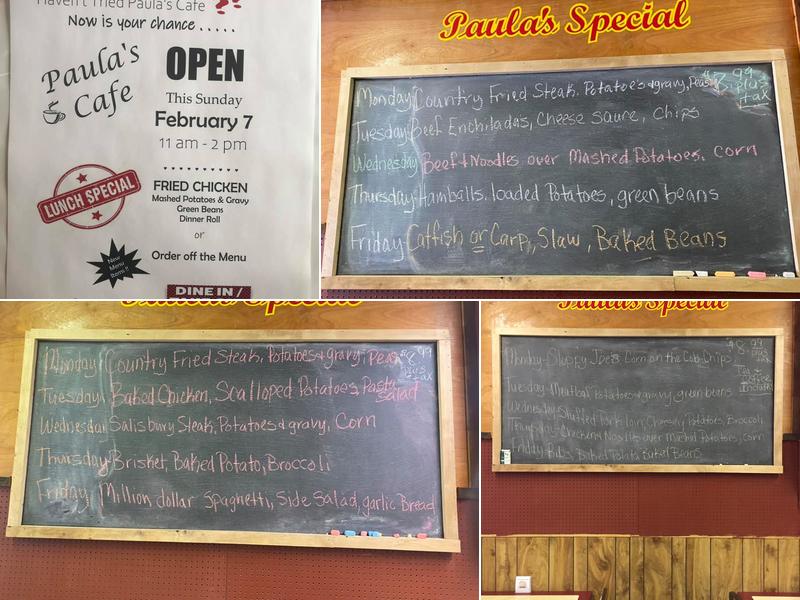 Haven't Tried Paula's Cafe
Now is your chance . . . . .
Paula's
Cafe
OPEN
This Sunday
February 7
11 am - 2 pm
LUNCH SPECIAL
FRIED CHICKEN
Mashed Potatoes & Gravy
Green Beans
Dinner Roll
or
New
Menu
Items!!
Order off the Menu
DINE IN /
Paula's Special
Monday Country Fried Steak, Potatoe's + gravy, Peas
$8.99
plus
tax
Tuesday Beef Enchiladas, Cheese Sauce, Chips
Wednesday Beef + Noodles over Mashed Potatoes, Corn
Thursday Hamballs, loaded Potatoes, green beans
Friday Catfish or Carp, Slaw, Baked Beans
Paula's Special
Monday Country Fried Steak, Potatoes + gravy, Peas
$8.99
plus
tax
Tuesday Baked Chicken, Scalloped Potatoes, Pasta Salad
Wednesday Salisbury Steak, Potatoes + gravy, Corn
Thursday Brisket, Baked Potato, Broccoli
Friday Million dollar Spaghetti, Side Salad, garlic Bread
Paula's Special
Monday-Sloppy Joes Corn on the Cob Chips
$8.99
plus
tax
Tea +
Coffee
Tuesday-Meatloaf Potatoes + gravy green beans
Wednesday Stuffed Pork loin, Cheesy Potatoes, Broccoli
Thursday-Chicken + Noodles over Mashed Potatoes, corn
Friday Ribs, Baked Potato Baked Beans